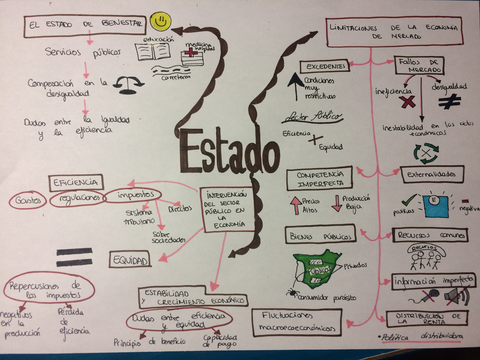 EL ESTADO DE BIENESTAR
Servicios públicos
educación
medicina
carreteras
Compensación en la
desigualdad
Dudas entre la igualdad
y la eficiencia
Estado
LIMITACIONES DE LA ECONOMÍA
DE MERCADO
EXCEDENTES
Condiciones
muy
restrictivas
Sector Público
Eficiencia
Equidad
FALLOS DE
MERCADO
ineficiencia
desigualdad
Inestabilidad en los ciclos
económicos
COMPETENCIA
IMPERFECTA
Precios
Altos
Producción
Baja
Externalidades
positivas
negativas
BIENES PÚBLICOS
Mundos
Consumidor parásito
RECURSOS COMUNES
RECURSOS
Información imperfecta
Fluctuaciones
macroeconómicas
DISTRIBUCIÓN DE
LA RENTA
* Política distributiva
INTERVENCIÓN
DEL SECTOR
PÚBLICO EN LA
ECONOMÍA
EFICIENCIA
Gastos
regulaciones
impuestos
Sistema
tributario
Sobre
sociedades
Directos
EQUIDAD
Repercusiones de
los impuestos
negativas
en la
producción
Pérdida
de
eficiencia
ESTABILIDAD
Y CRECIMIENTO ECONÓMICO
Dudas entre eficiencia
y equidad
Principio de beneficio
Capacidad
de pago